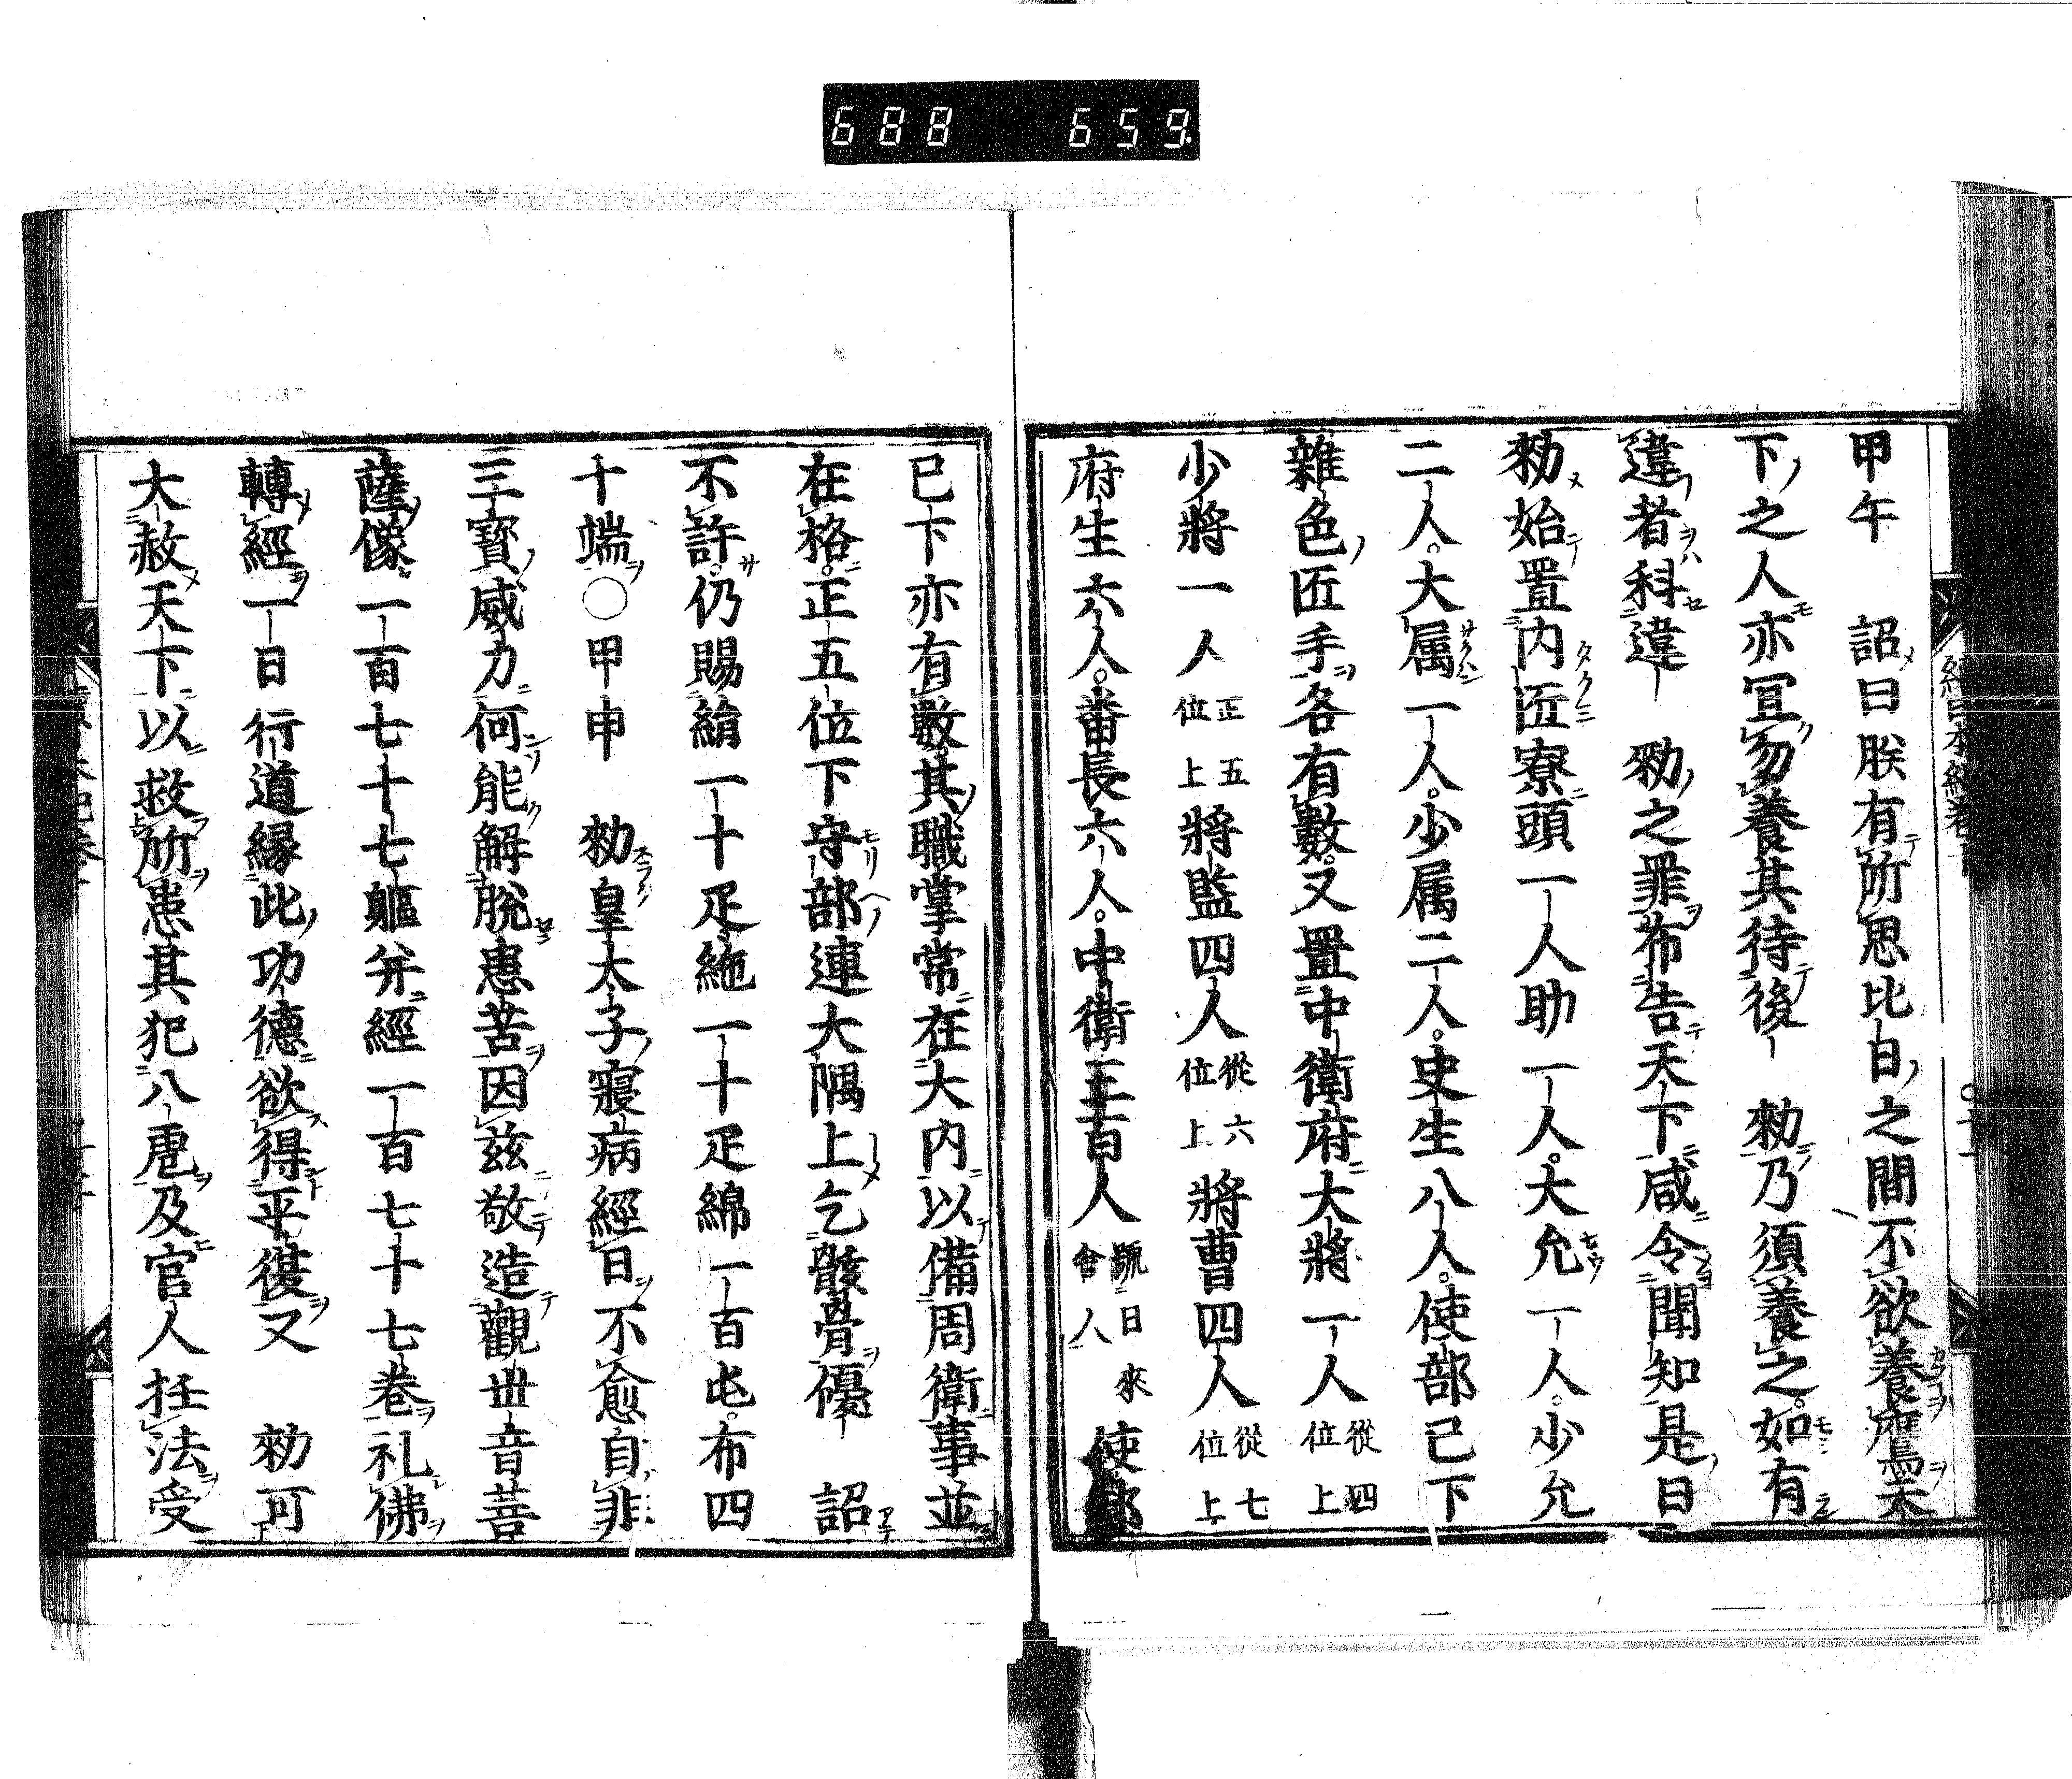 688 659.
甲午 詔曰朕有所思比日之間不欲養鷹天
下之人亦冝勿養其待後 勑乃須養之。如有
違者科違 勑之罪布告天下咸令聞知是日
勑始置内匠寮頭一人助一人。大允一人。少允
二人。大属一人。少属二人。史生八人。使部已下
雜色匠手各有數。又置中衛府大將一人從四位上
少將一人正五位上將監四人從六位上將曹四人從七位上
府生六人。番長六人。中衛三百人號曰東舎人使部
已下亦有數。其職掌常在大内以備周衛事並
在格。正五位下守部連大隅上乞骸骨優 詔
不許。仍賜絹一十疋絁一十疋綿一百屯。布四
十端○甲申 勑皇太子寢病經日不愈自非
三寳威力何能解脫患苦因茲敬造觀世音菩
薩像一百七十七軀并經一百七十七巻礼佛
轉經一日行道縁此功德欲得平復又 勑可
大赦天下以救所患其犯八虐及官人抂法受